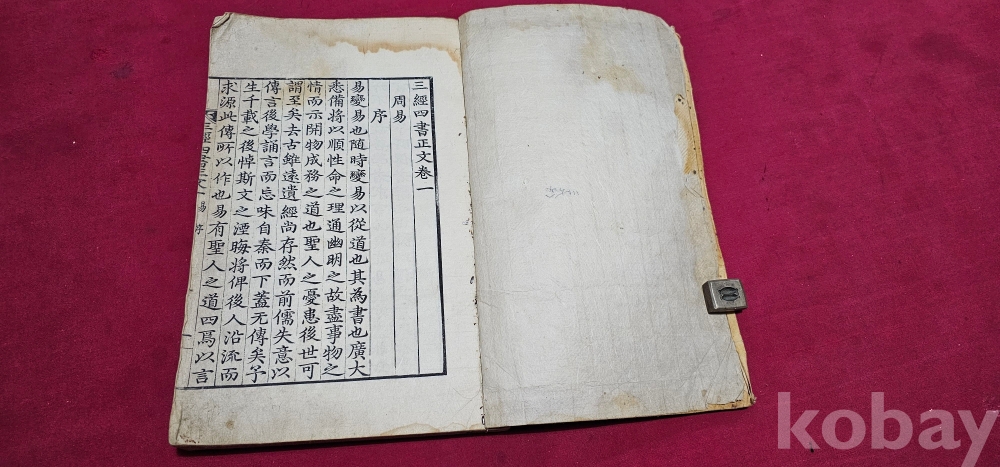 三經四書正文卷一
周易
序
易變易也隨時變易以從道也其為書也廣大
悉備將以順性命之理通幽明之故盡事物之
情而示開物成務之道也聖人之憂患後世可
謂至矣去古雖遠遺經尚存然而前儒失意以
傳言後學誦言而忘味自秦而下蓋无傳矣予
生千載之後悼斯文之湮晦將俾後人沿流而
求源此傳所以作也易有聖人之道四焉以言
三經四書正文 易 序
kobay